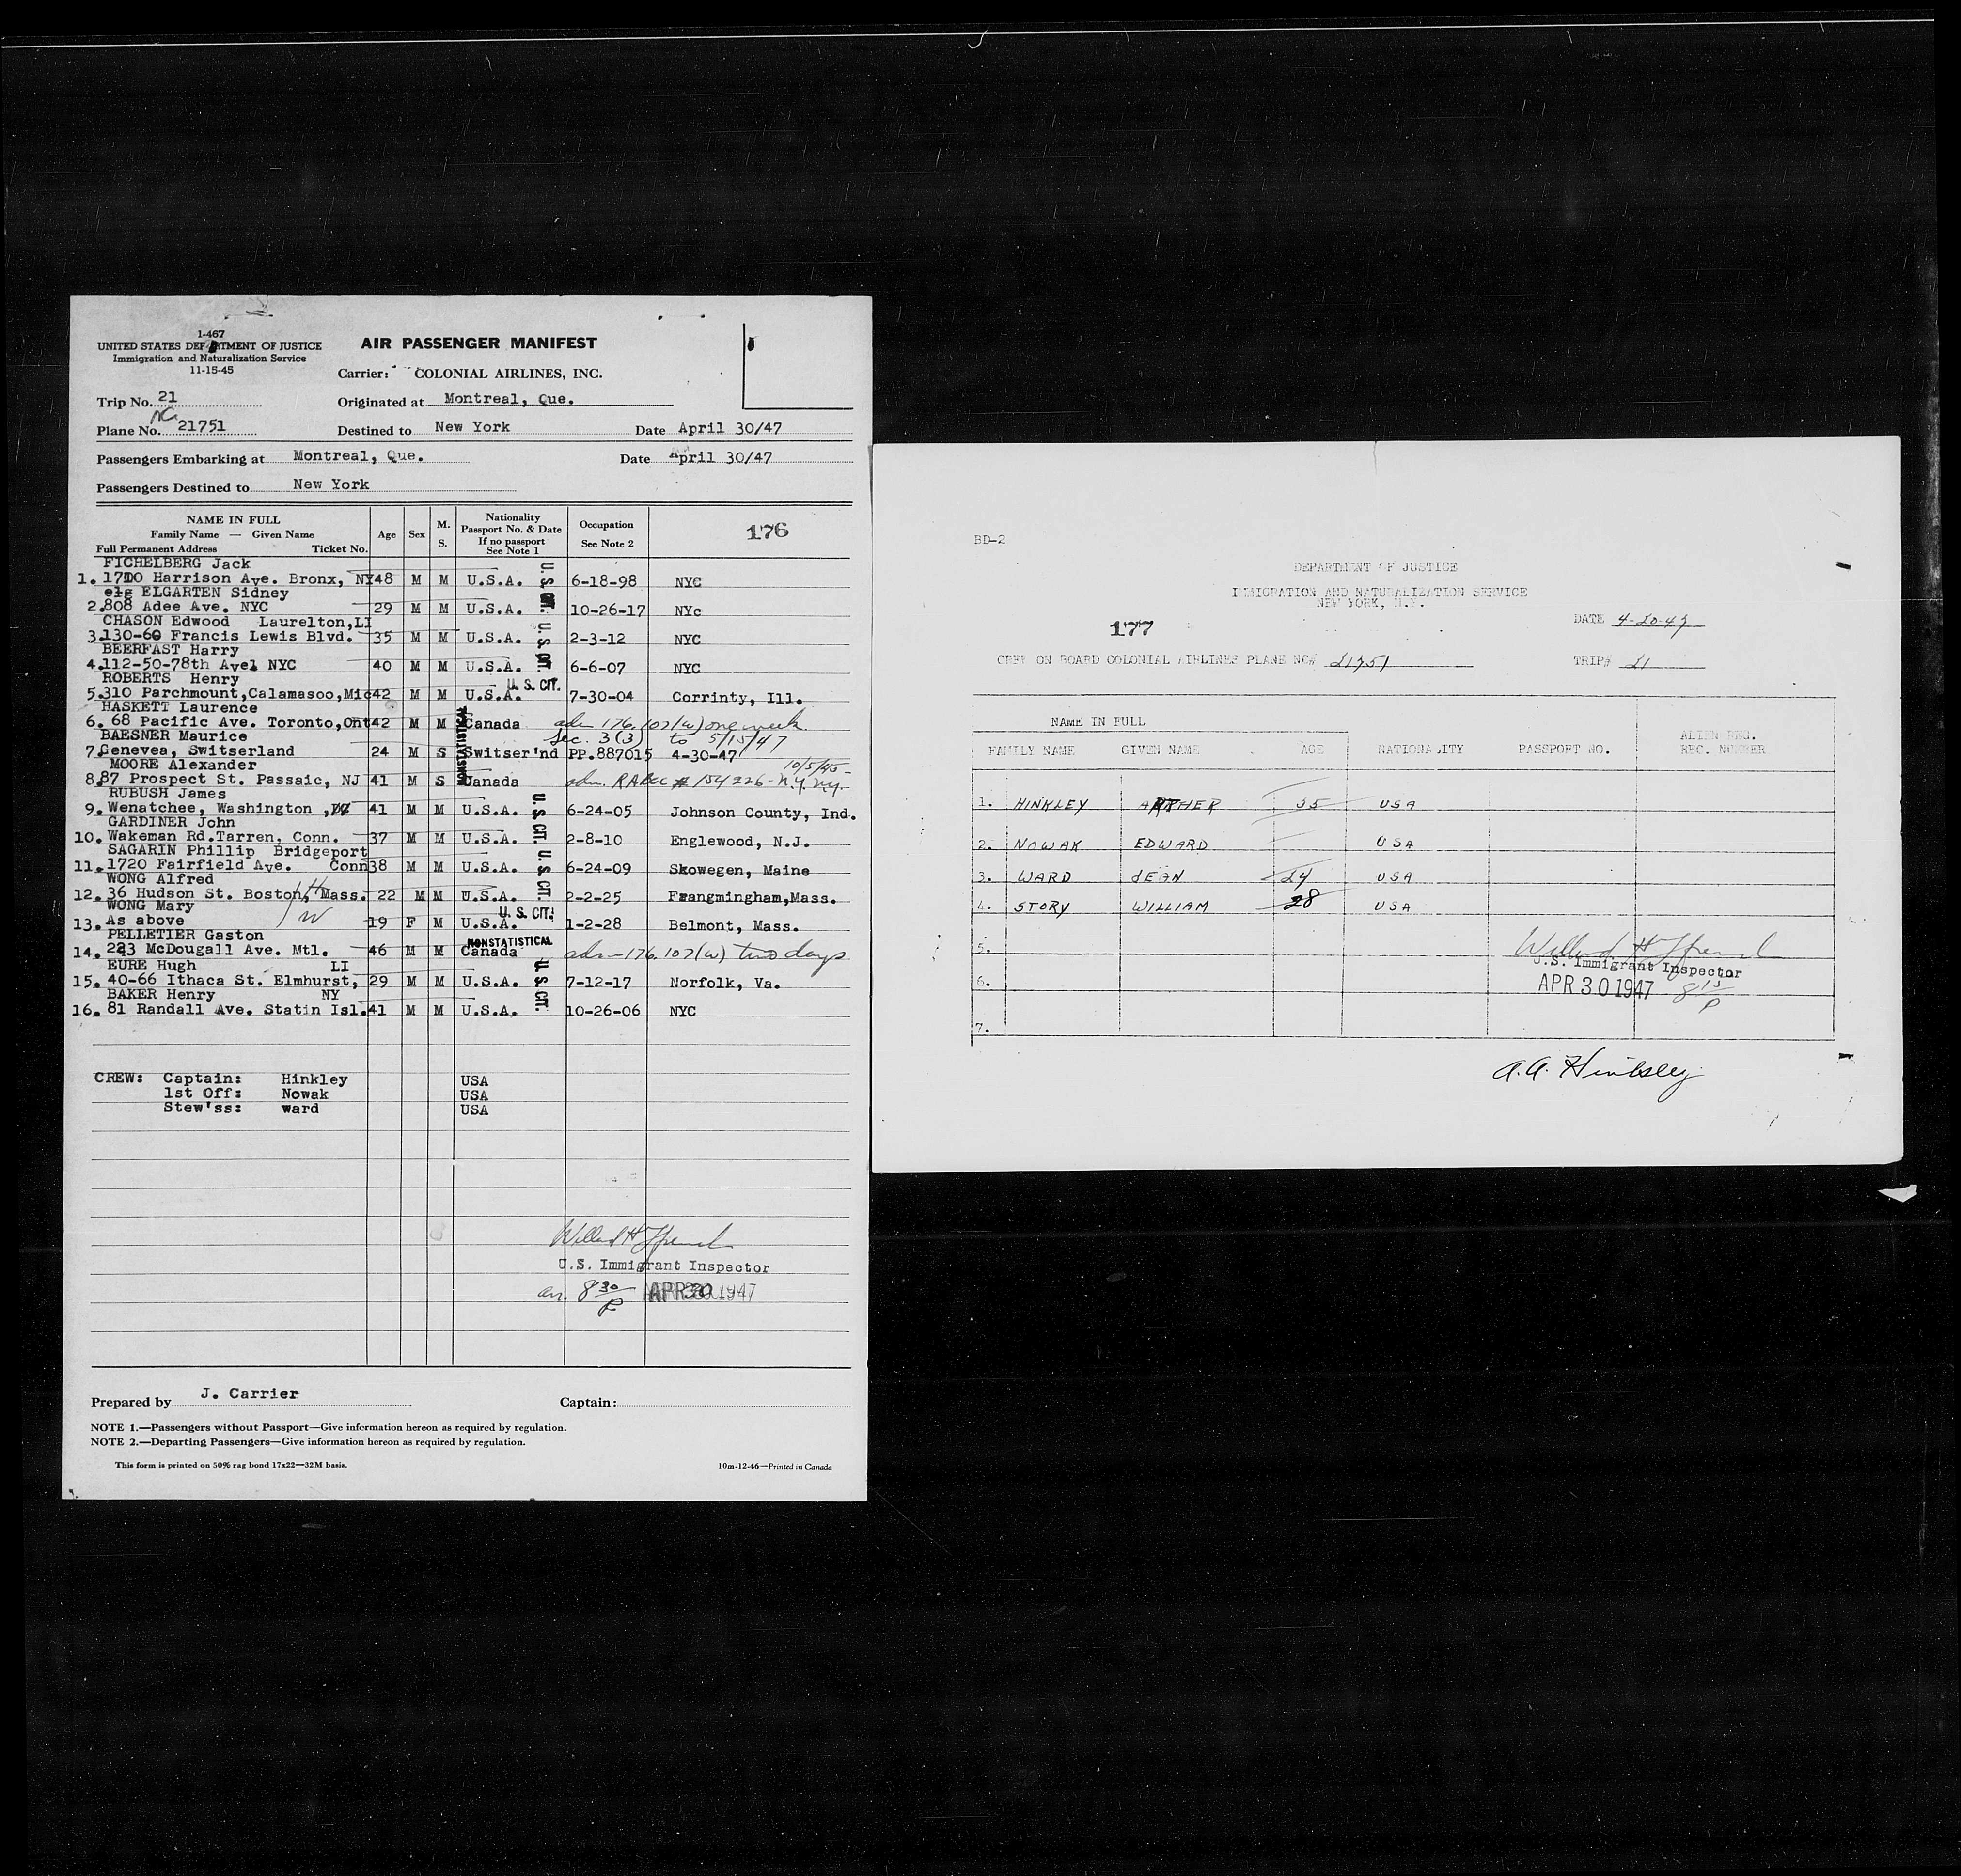 1-467
UNITED STATES DEPARTMENT OF JUSTICE
Immigration and Naturalization Service
11-15-45
AIR PASSENGER MANIFEST
Carrier: COLONIAL AIRLINES, INC.
Trip No. 21
Originated at Montreal, Que.
NC
Plane No. 21751
Destined to New York Date April 30/47
Passengers Embarking at Montreal, Que. Date April 30/47
Passengers Destined to New York
NAME IN FULL
Family Name — Given Name
Full Permanent Address Ticket No.
Age Sex M. S.
Nationality
Passport No. & Date
If no passport
See Note 1
Occupation
See Note 2
176
FICHELBERG Jack
1. 1710 Harrison Ave. Bronx, NY 48 M M U.S.A. U.S. CIT. 6-18-98 NYC
elg ELGARTEN Sidney
2. 808 Adee Ave. NYC 29 M M U.S.A. 10-26-17 NYc
CHASON Edwood Laurelton,LI
3. 130-60 Francis Lewis Blvd. 35 M M U.S.A. U.S. CIT. 2-3-12 NYC
BEERFAST Harry
4. 112-50-78th Avel NYC 40 M M U.S.A. 6-6-07 NYC
ROBERTS Henry
5. 310 Parchmount,Calamasoo,Mic 42 M M U.S.A. U. S. CIT. 7-30-04 Corrinty, Ill.
HASKETT Laurence
6. 68 Pacific Ave. Toronto,Ont 42 M M Canada adm 176.107(w) one week
NONSTATISTICAL
BAESNER Maurice Sec. 3(3) to 5/15/47
7. Genevea, Switserland 24 M S Switser'nd PP.887015 4-30-47
MOORE Alexander 10/5/45-
8. 87 Prospect St. Passaic, NJ 41 M S Canada adm. RA Rec # 154226-N.Y. N.Y.
RUBUSH James
9. Wenatchee, Washington 41 M M U.S.A. U.S. CIT. 6-24-05 Johnson County, Ind.
GARDINER John
10. Wakeman Rd.Tarren, Conn. 37 M M U.S.A. 2-8-10 Englewood, N.J.
SAGARIN Phillip Bridgeport
11. 1720 Fairfield Ave. Conn 38 M M U.S.A. U.S. CIT. 6-24-09 Skowegen, Maine
WONG Alfred
12. 36 Hudson St. Boston, Mass. 22 M M U.S.A. 2-2-25 Frangmingham,Mass.
H
WONG Mary
W
13. As above 19 F M U.S.A. U. S. CIT. 1-2-28 Belmont, Mass.
PELLETIER Gaston NONSTATISTICAL
14. 223 McDougall Ave. Mtl. 46 M M Canada adm 176.107(w) two days
EURE Hugh LI
15. 40-66 Ithaca St. Elmhurst, 29 M M U.S.A. U.S. CIT. 7-12-17 Norfolk, Va.
BAKER Henry NY
16. 81 Randall Ave. Statin Isl. 41 M M U.S.A. 10-26-06 NYC
CREW: Captain: Hinkley USA
1st Off: Nowak USA
Stew'ss: ward USA
U.S. Immigrant Inspector
arr. 8 30 P APR 30 1947
Prepared by J. Carrier
Captain:
NOTE 1.—Passengers without Passport—Give information hereon as required by regulation.
NOTE 2.—Departing Passengers—Give information hereon as required by regulation.
This form is printed on 50% rag bond 17x22—32M basis.
10m-12-46—Printed in Canada
BD-2
DEPARTMENT OF JUSTICE
IMMIGRATION AND NATURALIZATION SERVICE
NEW YORK, N.Y.
177
DATE 4-20-47
CREW ON BOARD COLONIAL AIRLINES PLANE NC# 21751 TRIP# 21
NAME IN FULL
FAMILY NAME GIVEN NAME AGE NATIONALITY PASSPORT NO. ALIEN REG. REC. NUMBER
1. HINKLEY ARTHER 35 USA
2. NOWAK EDWARD USA
3. WARD JEAN 24 USA
4. STORY WILLIAM 28 USA
5.
U.S. Immigrant Inspector
6. APR 30 1947 8 15 P
7.
A.A. Hinkley